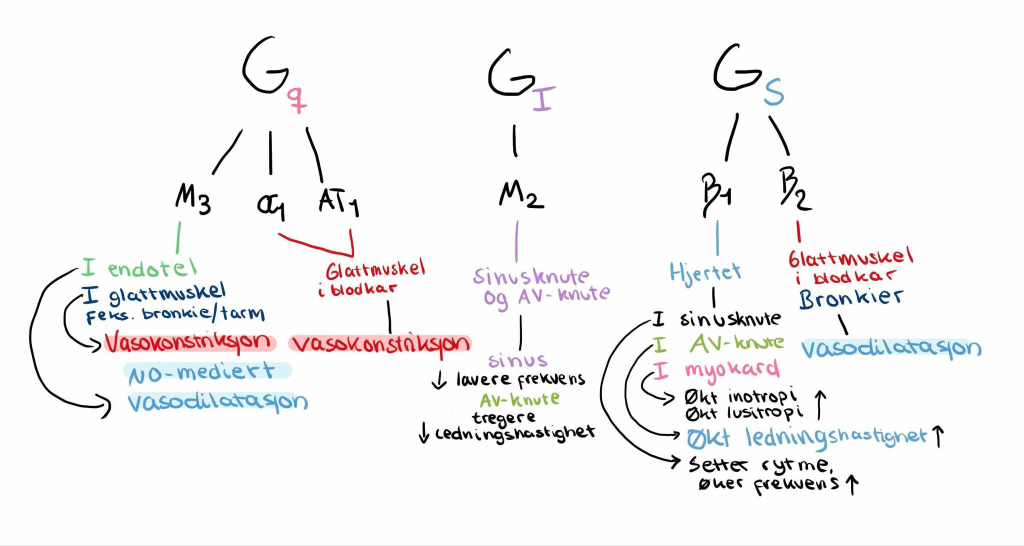 Gq
M3 α1 AT1
I endotel
I glattmuskel
Feks. bronkie/tarm
Vasokonstriksjon
NO-mediert
vasodilatasjon
Glattmuskel
i blodkar
vasokonstriksjon
GI
M2
Sinusknute
og AV-knute
sinus
↓ lavere frekvens
AV-knute
tregere
↓ ledningshastighet
GS
β1 β2
Hjertet
I sinusknute
I AV-knute
I myokard
Økt inotropi
Økt lusitropi ↑
Økt ledningshastighet ↑
Setter rytme,
øker frekvens ↑
Glattmuskel
i blodkar
Bronkier
vasodilatasjon